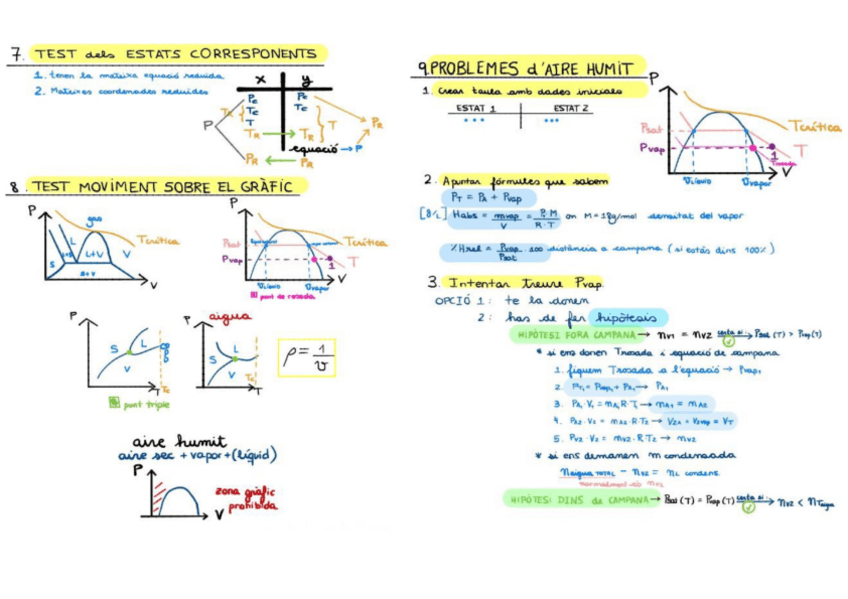 7. TEST dels ESTATS CORRESPONENTS
1. tenen la mateixa equació reduida
2. Mateixes coordenades reduides
x y
Pc Pc
Tc Tc
T
TR → TR
T
P
PR
PR ← PR
equació → P
8. TEST MOVIMENT SOBRE EL GRÀFIC
P
gas
Tcrítica
S
L
L+V
V
S+V
V
P
Psat
Pvap
Tcrítica
1
T
Vlíquid
Vvapor
V
punt de rosada
P
S
L
V
T
punt triple
aigua
P
S
L
V
T
ρ = 1/v
aire humit
aire sec + vapor + (líquid)
P
V
zona gràfic
prohibida
9. PROBLEMES d'AIRE HUMIT
1. Crear taula amb dades inicials
ESTAT 1 ESTAT 2
... ...
P
Psat
Pvap
Tcrítica
1
T
Trosada
Vlíquid
Vvapor
V
2. Apuntar fórmules que sabem
PT = PA + Pvap
Habs = mvap/V = P·M/R·T on M=18g/mol densitat del vapor
% Hrel = Pvap/Psat · 100 distància a campana (si estàs dins 100%)
3. Intentar treure Pvap
OPCIÓ 1: te la donen
2: has de fer hipòtesis
HIPÒTESI FORA CAMPANA → nv1 = nv2 certa si: → Psat (T) > Pvap (T)
* si ens donen Trosada i equació de campana
1. fiquem Trosada a l'equació → Pvap1
2. PT1 = Pvap1 + PA1 → PA1
3. PA1 · V1 = nA1 R · T1 → nA1 = nA2
4. PA2 · V2 = nA2 · R · T2 → V2A = V2vap = VT
5. PV2 · V2 = nV2 · R T2 → nV2
* si ens demanen m condensada
naigua TOTAL − nv2 = nL condens.
normalment és nv1
HIPÒTESI DINS de CAMPANA → Psat (T) = Pvap (T) certa si: → nv2 < nTaigua